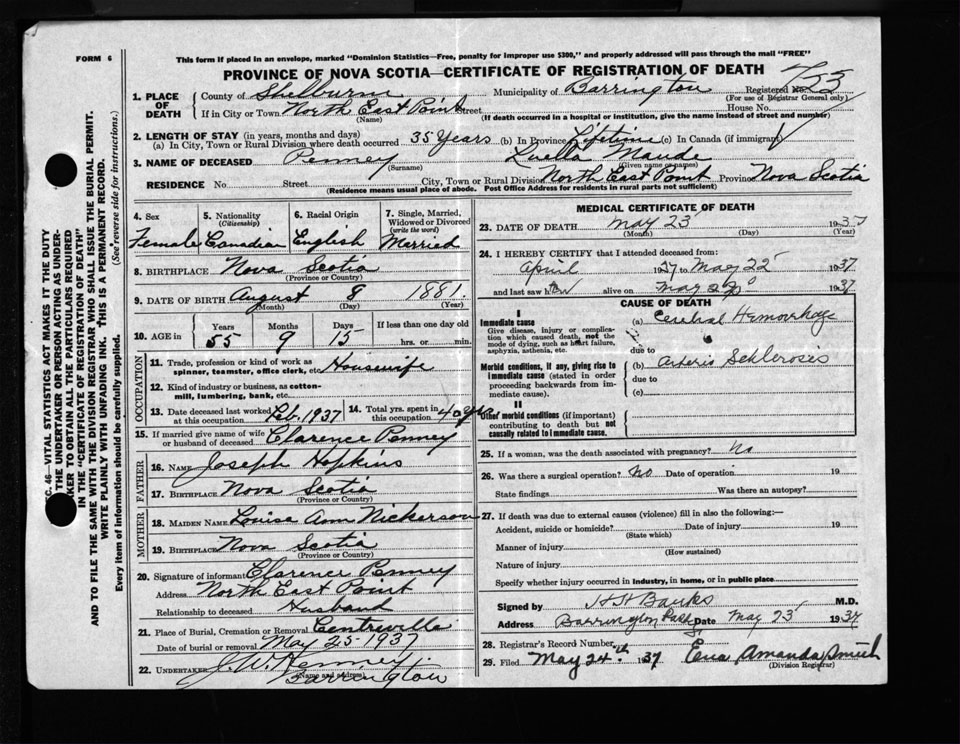 FORM 6
This form if placed in an envelope, marked "Dominion Statistics—Free, penalty for improper use $300," and properly addressed will pass through the mail "FREE"
PROVINCE OF NOVA SCOTIA—CERTIFICATE OF REGISTRATION OF DEATH
1. PLACE OF DEATH
County of Shelburne Municipality of Barrington Registered No. 753
(For use of Registrar General only)
If in City or Town North East Point Street House No.
(Name) (If death occurred in a hospital or institution, give the name instead of street and number)
2. LENGTH OF STAY (in years, months and days)
(a) In City, Town or Rural Division where death occurred 35 years (b) In Province Lifetime (c) In Canada (if immigrant)
3. NAME OF DECEASED Penney Luella Maude
(Surname) (Given name or names)
RESIDENCE No. Street City, Town or Rural Division North East Point Province Nova Scotia
(Residence means usual place of abode. Post Office Address for residents in rural parts not sufficient)
4. Sex Female
5. Nationality (Citizenship) Canadian
6. Racial Origin English
7. Single, Married, Widowed or Divorced (write the word) Married
8. BIRTHPLACE Nova Scotia
(Province or Country)
9. DATE OF BIRTH August 8 1881.
(Month) (Day) (Year)
10. AGE in Years Months Days If less than one day old
55 9 15 hrs. or min.
OCCUPATION
11. Trade, profession or kind of work as spinner, teamster, office clerk, etc. Housewife
12. Kind of industry or business, as cotton-mill, lumbering, bank, etc.
13. Date deceased last worked at this occupation Feb. 1937
14. Total yrs. spent in this occupation 40 yrs
15. If married give name of wife or husband of deceased Clarence Penney
FATHER
16. NAME Joseph Hopkins
17. BIRTHPLACE Nova Scotia
(Province or Country)
MOTHER
18. MAIDEN NAME Louise Ann Nickerson
19. BIRTHPLACE Nova Scotia
(Province or Country)
20. Signature of informant Clarence Penney
Address North East Point
Relationship to deceased Husband
21. Place of Burial, Cremation or Removal Centreville
Date of burial or removal May 25 1937
22. UNDERTAKER J. W.
(Name and address)
Barrington
MEDICAL CERTIFICATE OF DEATH
23. DATE OF DEATH May 23 1937
(Month) (Day) (Year)
24. I HEREBY CERTIFY that I attended deceased from:
April 1937 to May 22 1937
and last saw h alive on May 22 1937
CAUSE OF DEATH
I
Immediate cause
Give disease, injury or complication which caused death, not the mode of dying, such as heart failure, asphyxia, asthenia, etc.
(a) Cerebral Hemorrhage
due to
Morbid conditions, if any, giving rise to immediate cause (stated in order proceeding backwards from immediate cause).
(b) Arterio Schlerosis
due to
(c)
II
Other morbid conditions (if important) contributing to death but not causally related to immediate cause.
25. If a woman, was the death associated with pregnancy? No
26. Was there a surgical operation? No Date of operation 19
State findings Was there an autopsy?
27. If death was due to external causes (violence) fill in also the following:—
Accident, suicide or homicide? Date of injury 19
(State which)
Manner of injury
(How sustained)
Nature of injury
Specify whether injury occurred in industry, in home, or in public place
Signed by H H Banks M.D.
Address Barrington Passage Date May 23 1937
28. Registrar's Record Number
29. Filed May 24th 1937 Ena Amanda Smith
(Division Registrar)
C. 46—VITAL STATISTICS ACT MAKES IT THE DUTY
THE UNDERTAKER OR PERSON ACTING AS UNDER-
KER TO OBTAIN ALL THE PARTICULARS REQUIRED
IN THE "CERTIFICATE OF REGISTRATION OF DEATH"
AND TO FILE THE SAME WITH THE DIVISION REGISTRAR WHO SHALL ISSUE THE BURIAL PERMIT.
WRITE PLAINLY WITH UNFADING INK. THIS IS A PERMANENT RECORD.
Every item of information should be carefully supplied. (See reverse side for instructions.)